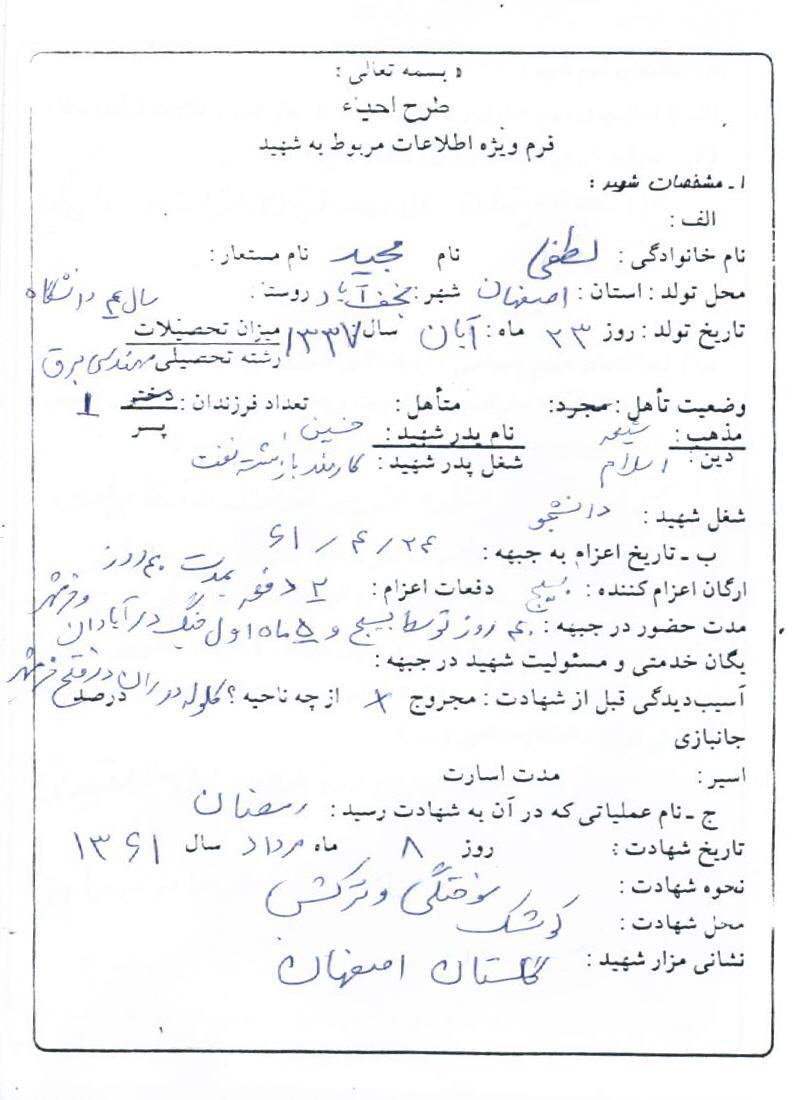 بسمه تعالی :
طرح احیاء
فرم ویژه اطلاعات مربوط به شهید
۱ ـ مشخصات شهید :
الف :
نام خانوادگی : لطفی نام مجید نام مستعار :
محل تولد : استان : اصفهان شهر : نجف آباد روستا : سال ۴ دانشگاه
تاریخ تولد : روز ۲۳ ماه : آبان سال ۱۳۳۷ میزان تحصیلات
رشته تحصیلی مهندسی برق
وضعیت تأهل : مجرد : متأهل : تعداد فرزندان : دختر ۱
پسر
مذهب : شیعه نام پدر شهید : حسین
دین : اسلام شغل پدر شهید : کارمند بازنشسته نفت
شغل شهید : دانشجو
ب ـ تاریخ اعزام به جبهه : ۲۴ / ۴ / ۶۱
ارگان اعزام کننده : بسیج دفعات اعزام : ۲ دفعه بمدت ۴۰ روز
مدت حضور در جبهه : ۴۰ روز توسط بسیج و ۵ ماه اول جنگ در آبادان و خرمشهر
یگان خدمتی و مسئولیت شهید در جبهه :
آسیب‌دیدگی قبل از شهادت : مجروح × از چه ناحیه ؟ گلوله در ران در فتح خرمشهر درصد
جانبازی
اسیر : مدت اسارت
ج ـ نام عملیاتی که در آن به شهادت رسید : رمضان
تاریخ شهادت : روز ۸ ماه مرداد سال ۱۳۶۱
نحوه شهادت : سوختگی و ترکش
محل شهادت : کوشک
نشانی مزار شهید : گلستان اصفهان